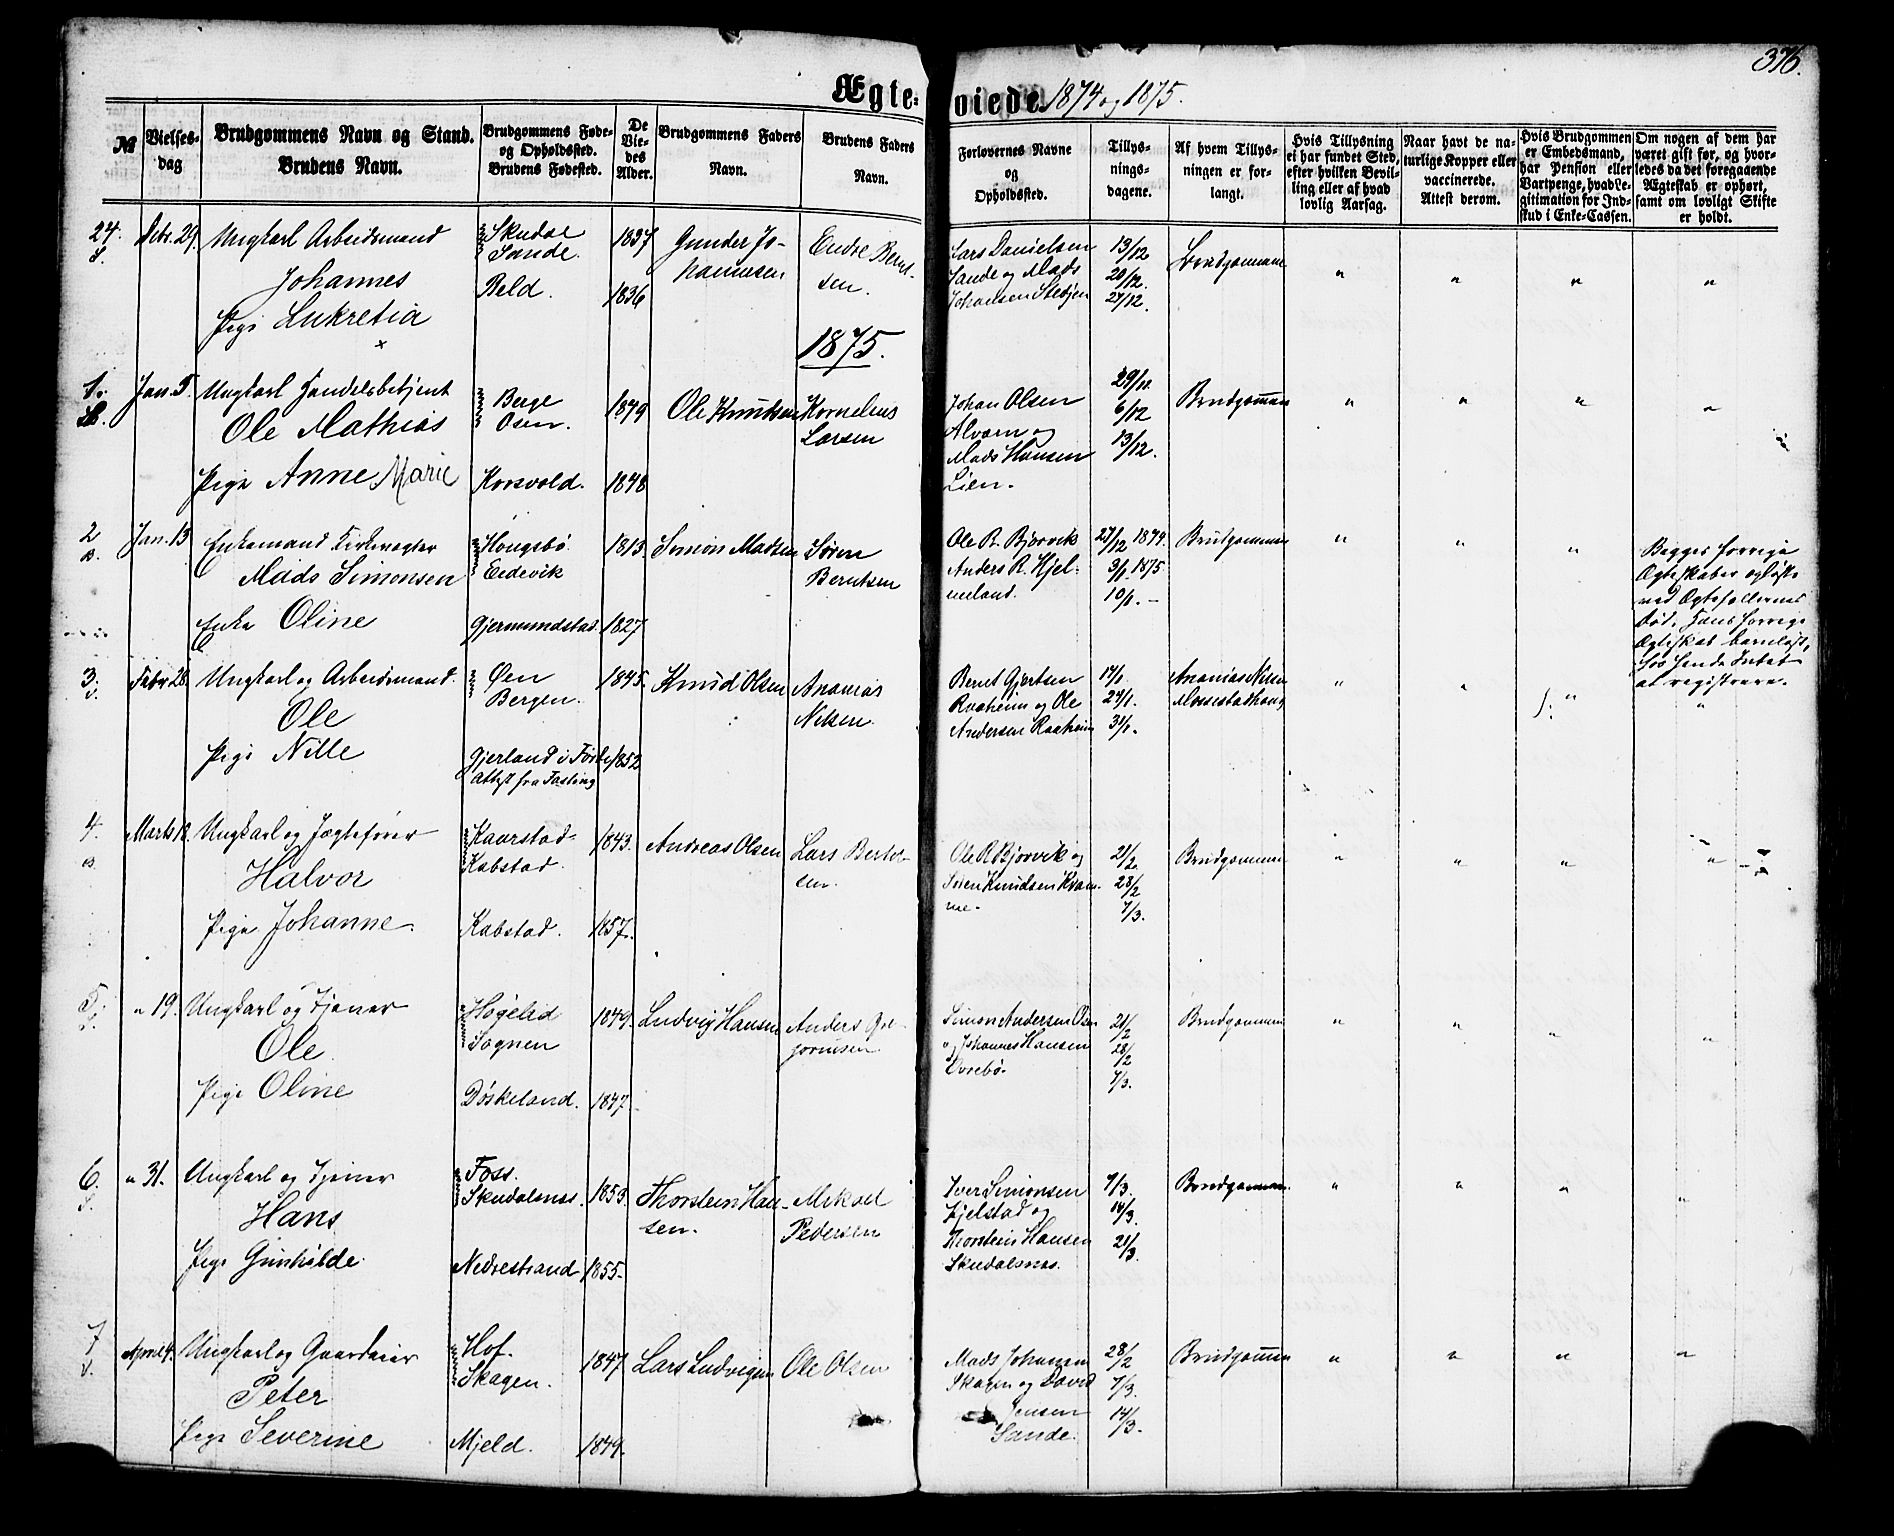 376.
Ægteviede 1874 og 1875.
№
Vielsesdag
Brudgommens Navn og Stand.
Brudens Navn.
Brudgommens Føde- og Opholdssted.
Brudens Fødested.
De Viedes Alder.
Brudgommens Faders Navn.
Brudens Faders Navn.
Forlovernes Navne og Opholdssted.
Tillysningsdagene.
Af hvem Tillysningen er forlangt.
Hvis Tillysning ei har fundet Sted, efter hvilken Bevilling eller af hvad lovlig Aarsag.
Naar havt de naturlige Kopper eller vaccinerede. Attest derom.
Hvis Brudgommen er Embedsmand, har Pension eller Vartpenge, hvad Legitimation for Indskud i Enke-Cassen.
Om nogen af dem har været gift før, og hvorledes da det foregaaende Ægteskab er ophørt, samt om lovligt Skifte er holdt.
24. Ungkarl Arbeidsmand Sande. 1837 Gunder Jo- Endre Bernt- Lars Danielsen 13/12 Brudgommen " " " "
S. Johannes Reld. 1836 hannesen sen. Sande og Mads 20/12.
Pige Lukretia Johansen 27/12.
1875.
1. Jan. 5. Ungkarl Handelsbetjent Berge 1849 Ole Knutsen Kornelius Johan Olsen 29/11. Brudgommen " " " "
Ole Mathias Osen. Larsen Alvorn og 6/12
Pige Anne Marie Korsvold. 1848 Mads Hansen 13/12.
Lien.
2 Jan. 13 Enkemand Kirkevægter Hougsbö 1813. Simon Madsen Søren Ole R. Bjørvik 27/12 1874. Brudgommen " " " Begges forrige
B. Mads Simonsen Eedevik Berntsen Anders R. Hjel- 3/1. 1875. Ægteskaber opløste
Enke Oline Gjermundstad. 1827 meland. 10/1. - ved Ægtefællernes
Død. Hans forrige
Ægteskab barnløst,
hos hende Intet
at registrere.
3. Febr 28. Ungkarl og Arbeidsmand. Øen 1845. Knud Olsen Ananias Bernt Gjertsen 17/1. Ananias Nilsen " " " "
Ole Bergen. Nilsen. Raaheim og Ole 24/1.
Pige Nille Gjerland i Førde 1852 Andersen Raaheim 31/1.
Attest fra Fasting
4. Marts 18. Ungkarl og Jægtefører Kaarstad 1843. Andreas Olsen Lars Bertel- Ole R. Bjørvik og 21/2 Brudgommen " " " "
B Halvor Kabstad. sen. Søren Knudsen Kvam- 28/2
Pige Johanne. Kabstad. 1857. me. 7/3.
5. " 19. Ungkarl og Tjener Høgelid 1849. Ludvig Hansen Anders Gut- Simon Andersen Osen 21/2 Brudgommen " " " "
S. Ole. Sognen tormsen. og Johannes Hansen 28/2
Pige Oline Døskeland. 1847 7/3.
6. " 31. Ungkarl og Tjener Foss. 1853. Thorstein Han- Mikael Iver Simonsen 7/3. Brudgommen. " " " "
S. Hans Skudalsnes. sen. Pedersen Fjelstad og 14/3.
Pige Gunhilde. Nedrestrand 1855. Thorstein Hansen 21/3.
Skudalsnes.
7 April 4. Ungkarl og Gaardeier Hof. 1847. Lars Ludvigsen Ole Olsen Mads Johansen 28/2 Brudgommen " " " "
S. Peter Skagen. Skagen og David 7/3.
Pige Severine Mjeld. 1849. Jensen 14/3.
Sande.